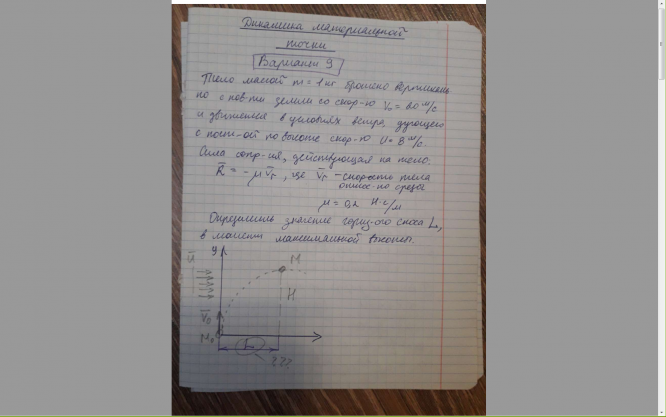 Динамика материальной
точки
Вариант 9
Тело массой m = 1 кг брошено вертикаль
но с пов-ти земли со скор-ю V₀ = 20 м/с
и движется в условиях ветра, дующего
с пост-ой по высоте скор-ю U = 3 м/с.
Сила сопр-ия, действующая на тело:
R̅ = -μV̅r, где V̅r - скорость тела
относ-но среды
μ = 0,2 Н·с/м
Определить значение гориз-ого сноса L,
в момент максимальной высоты.
y
M
u̅
H
V̅₀
M₀
L
???